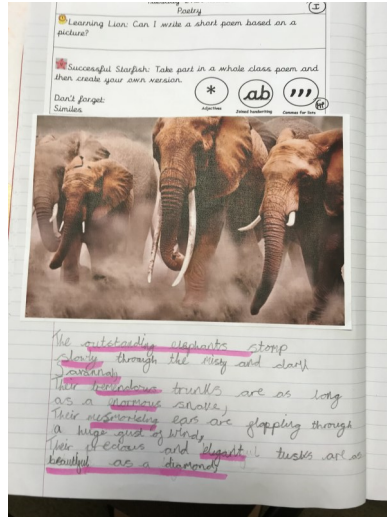 Poetry
I
Learning Lion: Can I write a short poem based on a
picture?
Successful Starfish: Take part in a whole class poem and
then create your own version.
Don't forget:
Similes
* ab ,,,
Adjectives Joined handwriting Commas for lists
The outstanding elephants stomp
slowly through the misty and dark
Savannah,
Their tremendous trunks are as long
as a enormous snake,
Their mesmerising ears are flapping through
a huge gust of wind,
Their precious and elegant tusks are as
beautiful as a diamond